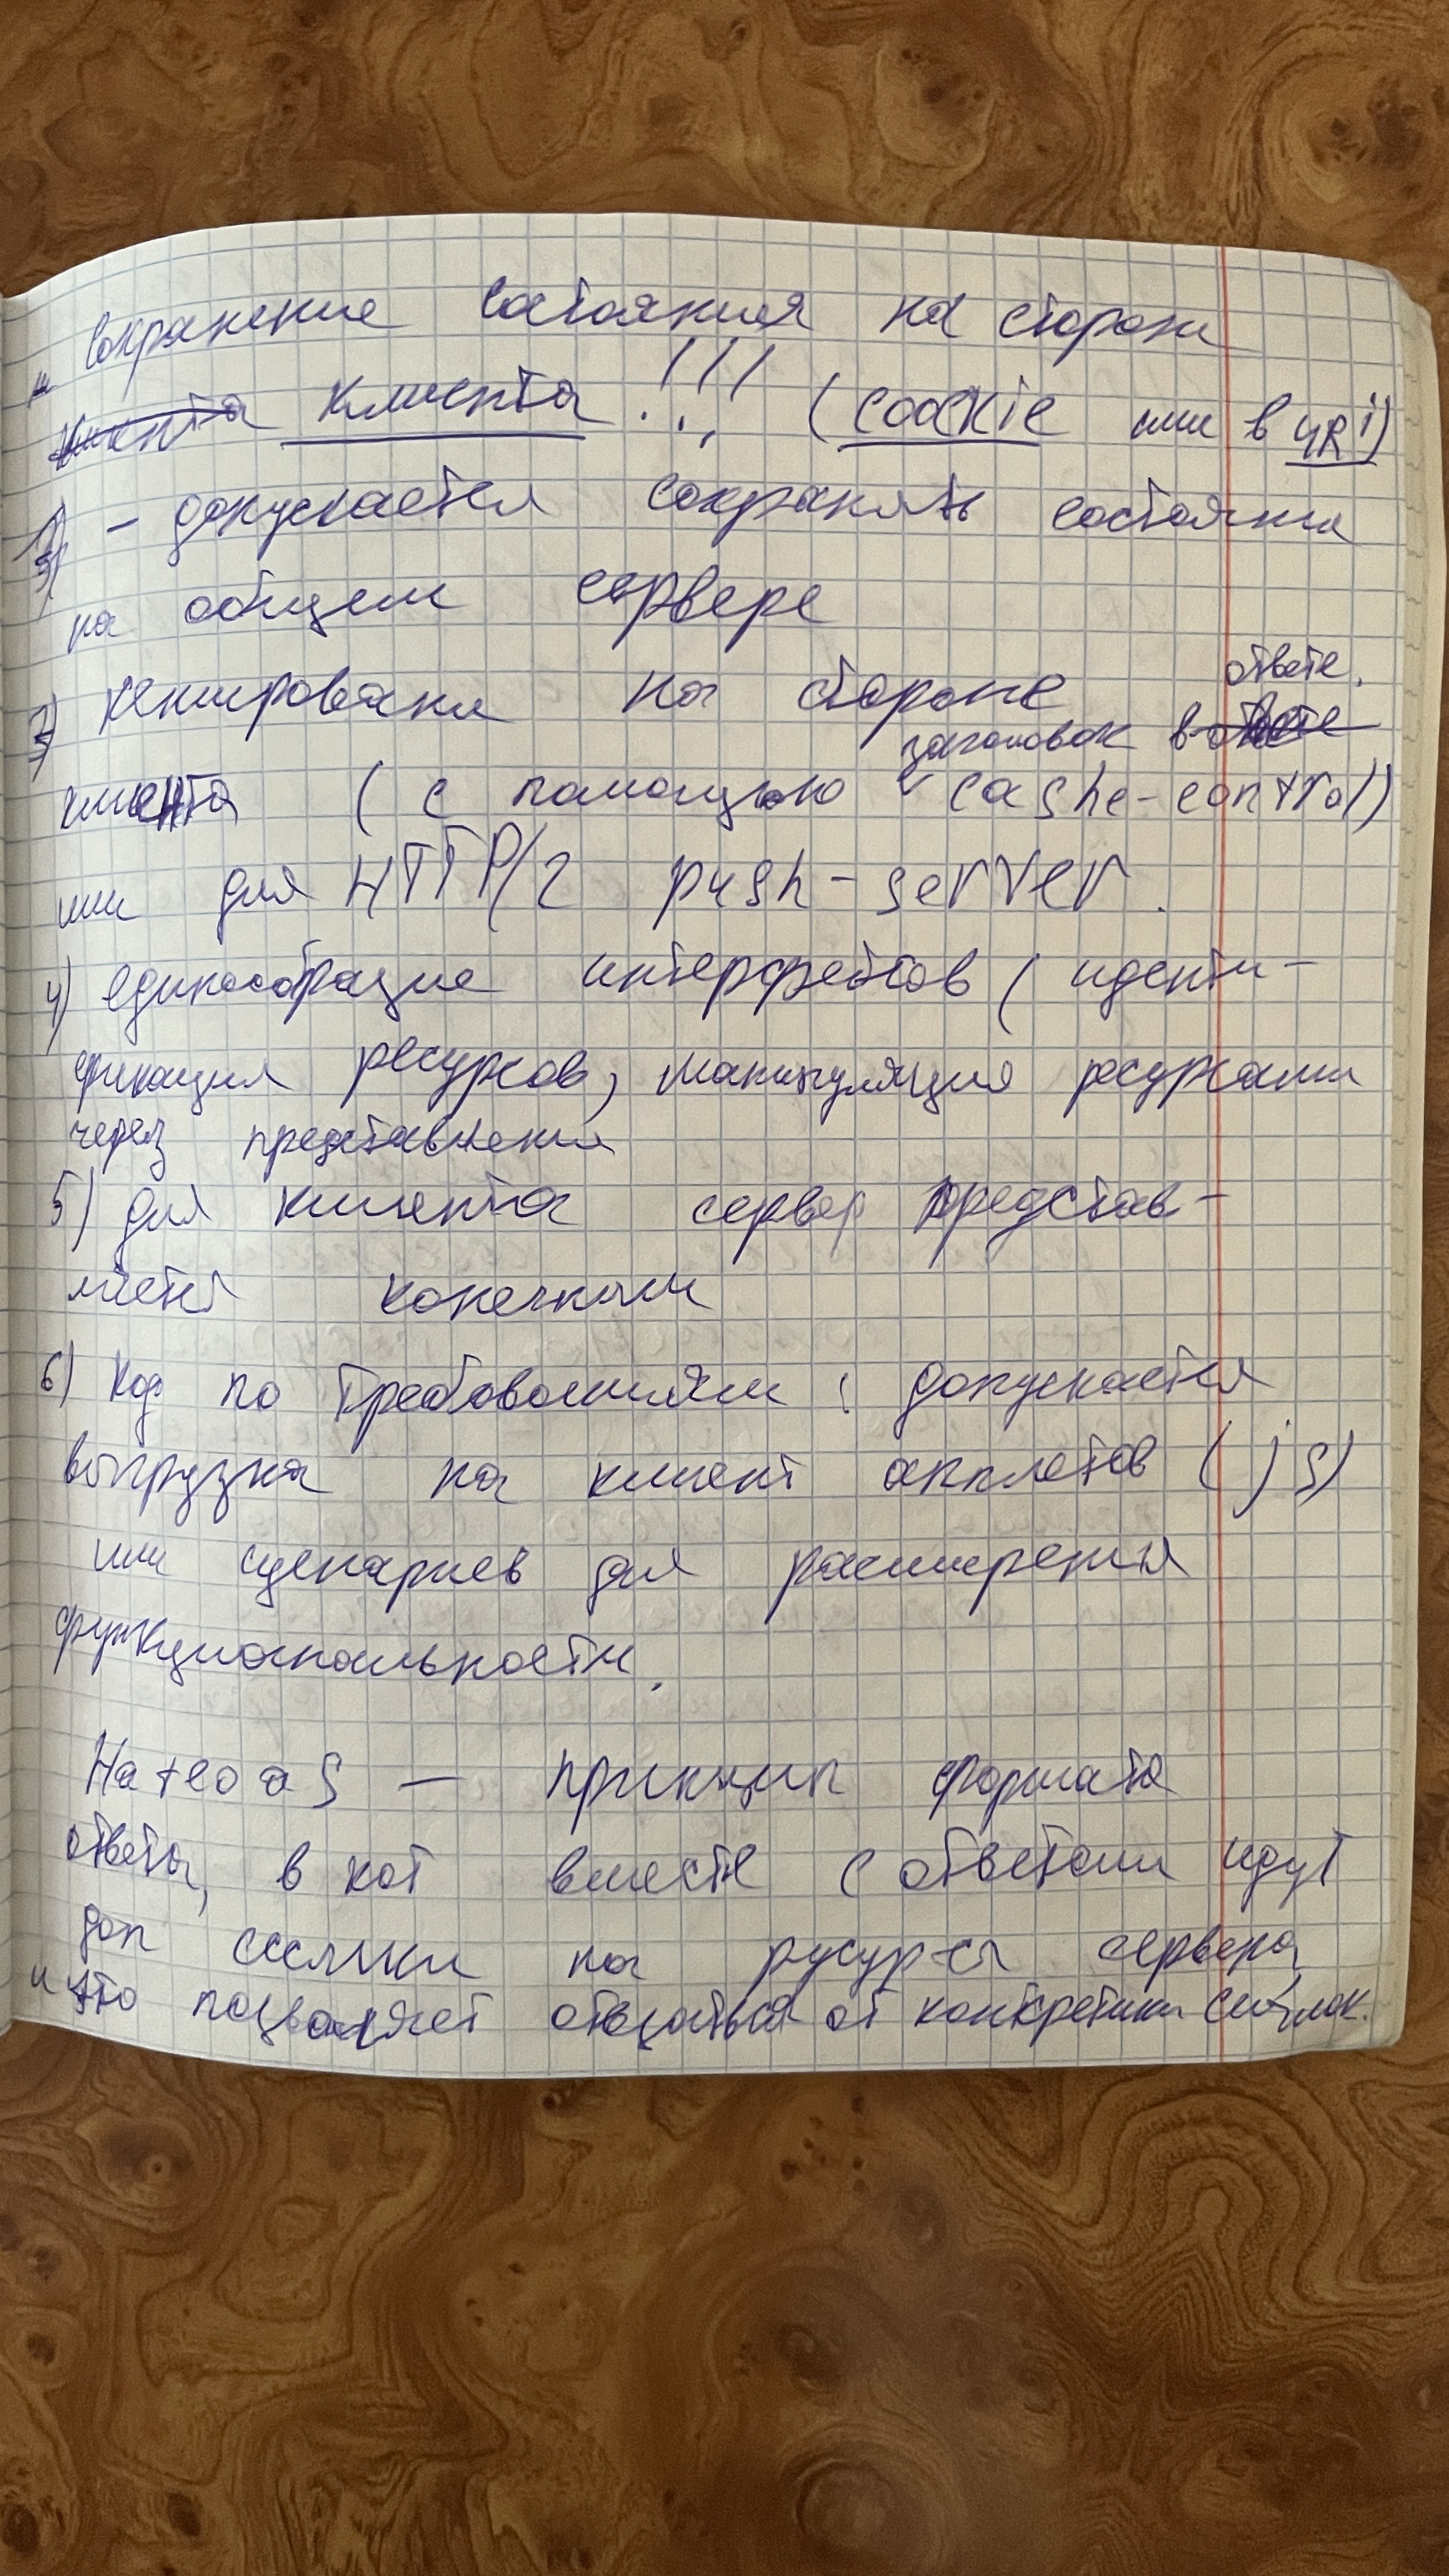 сохранение состояния на стороне
клиента !!! (coockie или в URi)
- допускается сохранять состояние
на общем сервере
3) кеширование на стороне ответе.
клиента (с помощью заголовок cashe-control)
или для HTTP/2 push-server.
4) единообразие интерфейсов (иденти-
фикация ресурсов, манипуляция ресурсами
через представления
5) для клиента сервер представ-
ляется конечным
6) Код по требованиям: допускается
выгрузка на клиент апплетов (js)
или сценариев для расширения
функциональности.
Hateoas — принцип формата
ответа, в кот вместе с ответами идут
доп ссылки на русурсы сервера
и это позволяет отвязаться от конкретики ссылок.